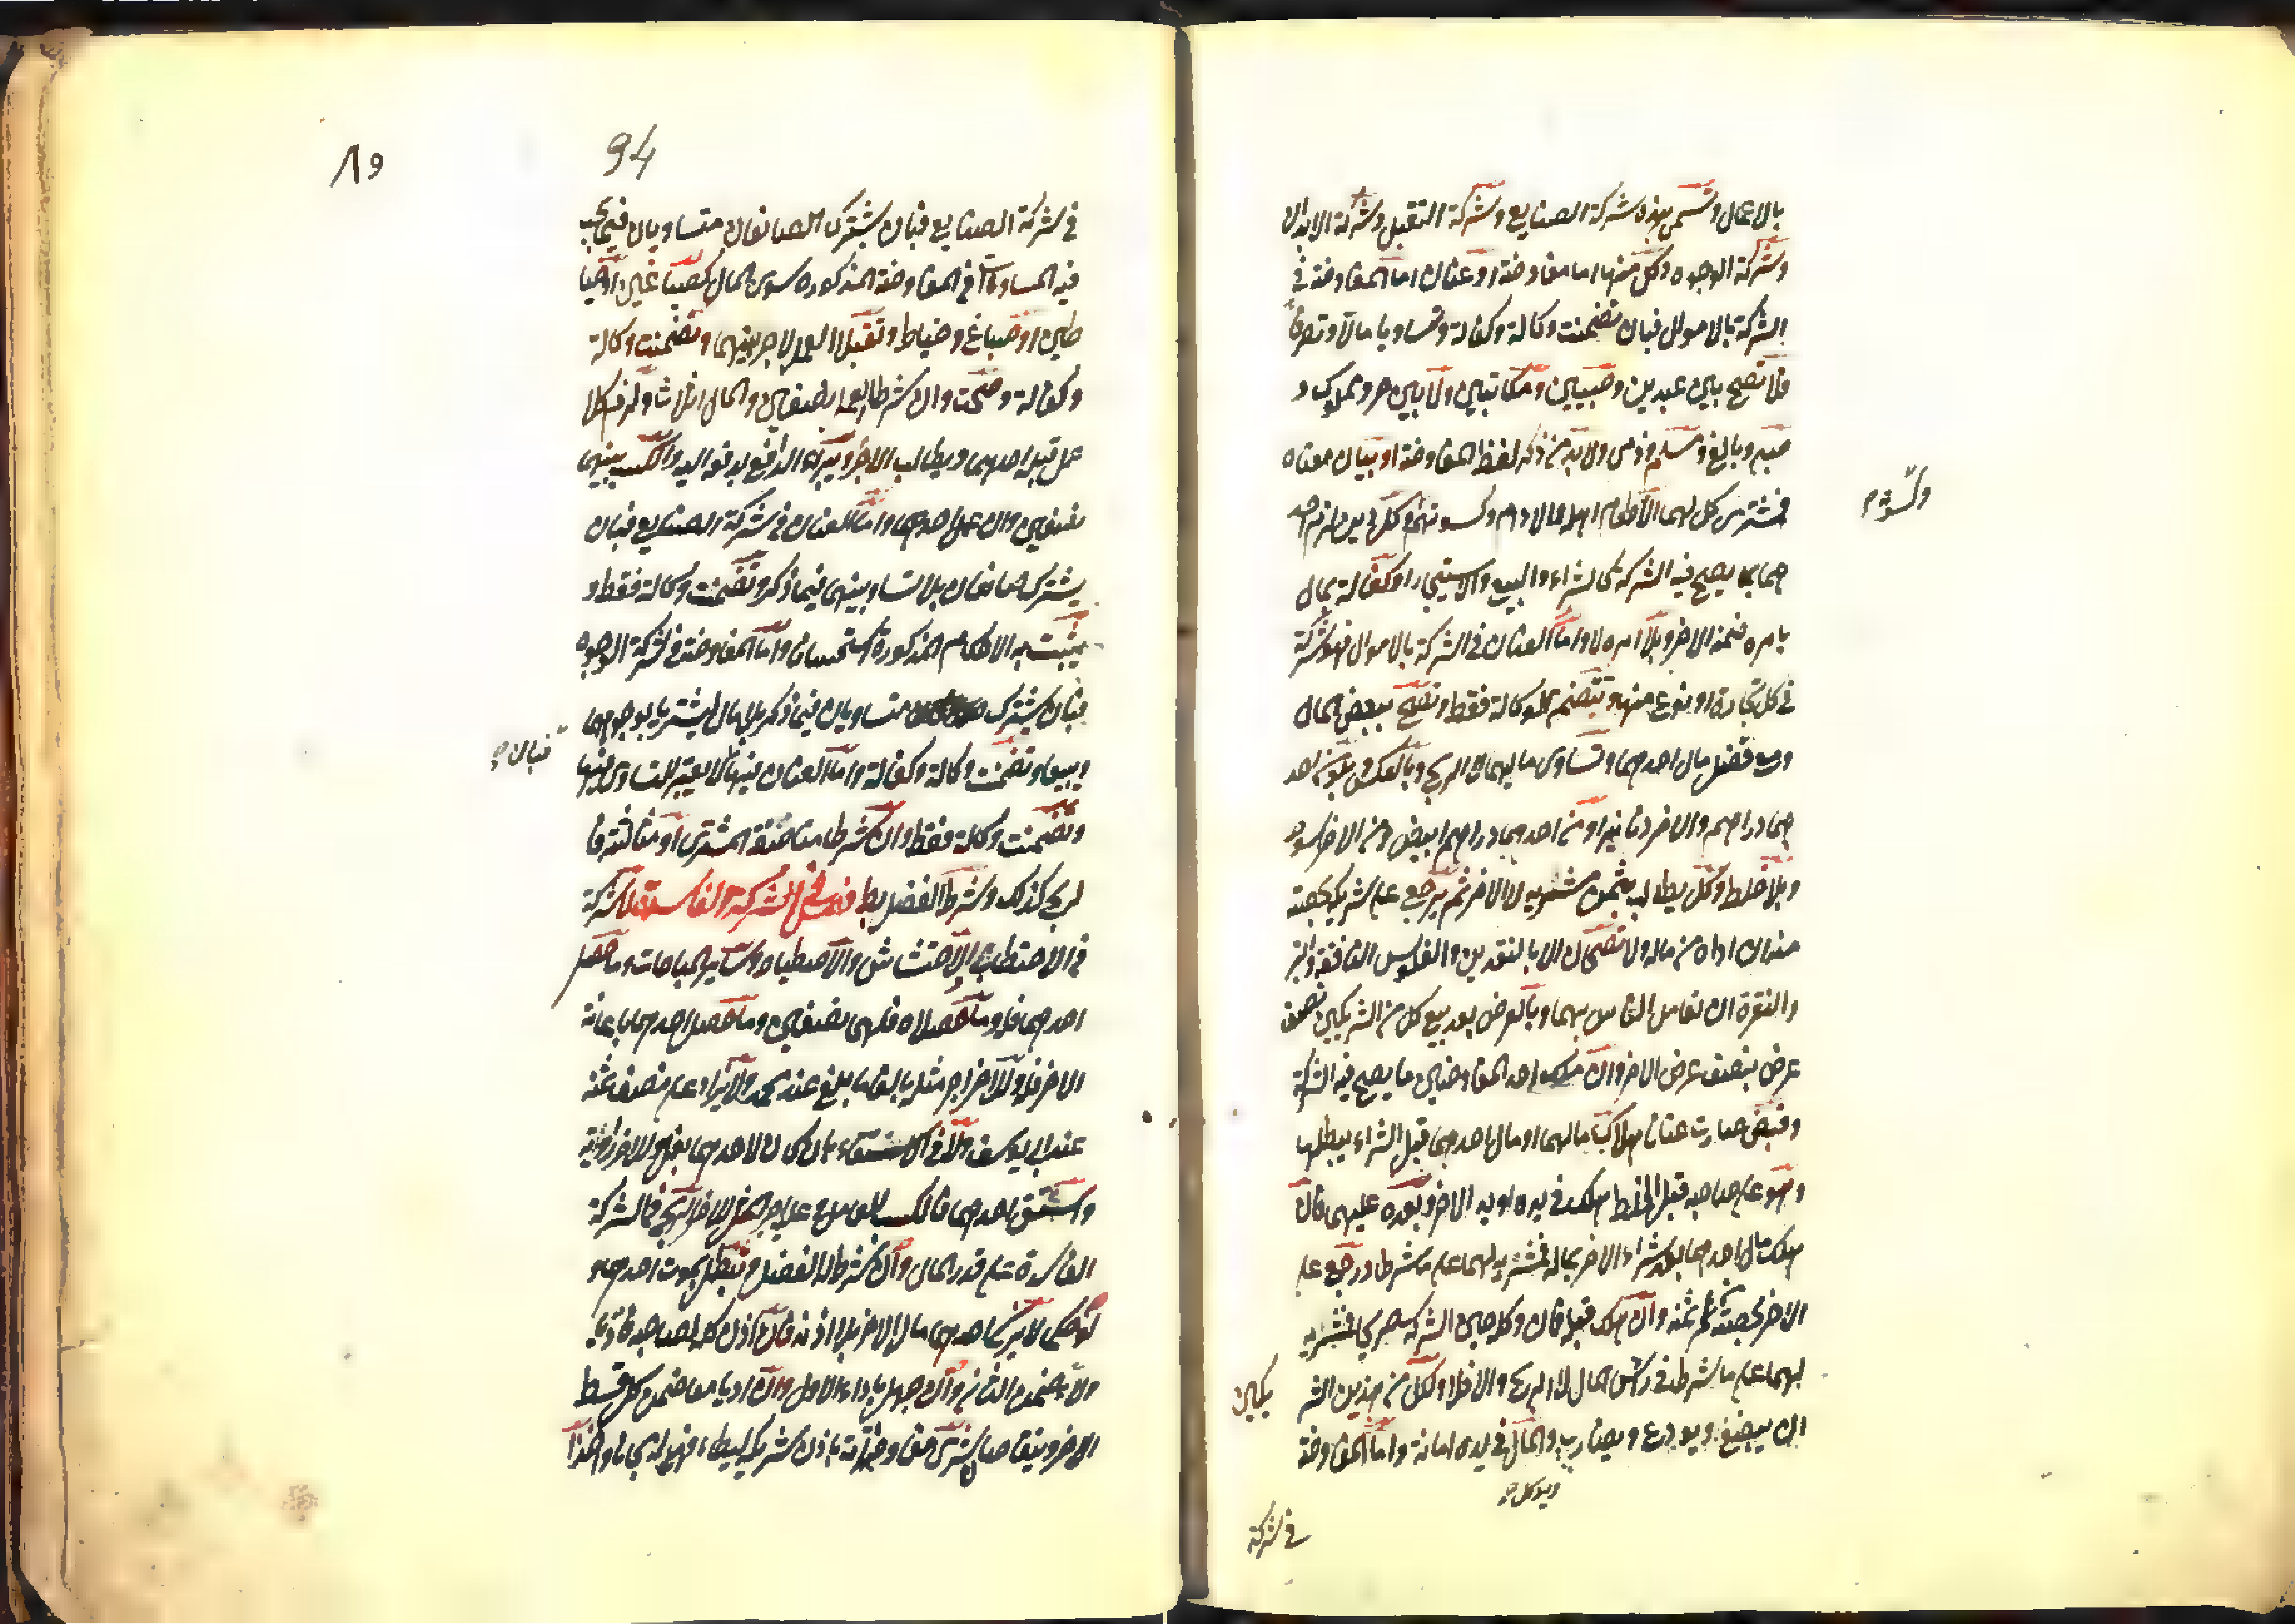 بالاعمال وتسمى هذه شركة الصنايع وشركة التقبل وشركة الابدان
وشركة الوجوه وكل منها اما مفاوضة او عنان اما المفاوضة في
الشركة بالاموال فبان تضمنت وكالة وكفالة وتساويا مالا وتصرفا
فلا تصح بين عبدين وصبيين ومكاتبين ولا بين حر ومملوك و
صبي وبالغ ومسلم وذمي ولا بد من ذكر لفظ المفاوضة او بيان معناه
فمشترى كل لهما الا طعام اهله والادام وكسوتهم وكل دين لزم احد
هما بما يصح فيه الشركة كالشراء والبيع والاستيجار او كفالة بمال
بامره ضمنه الاخر وبلا امره لا واما العنان في الشركة بالاموال فهو شركة
في كل تجارة او نوع منها وتتضمن الوكالة فقط وتصح ببعض المال
ومع فضل مال احدهما وتساوى ماليهما لا الربح وبالعكس وبكون احد
هما دراهم والاخر دنانير او من احدهما دراهم ابيض ومن الاخر سود
وبلا خلط وكل يطالب بثمن مشتريه لا الاخر ثم يرجع على شريكه بحصته
منه ان اداه من ماله ولا تصحان الا بالنقدين والفلوس النافقة والتبر
والنقرة ان تعامل الناس بهما وبالعرض بعد بيع كل من الشريكين نصف
عرض بنصف عرض الاخر وان ملك احد المفاوضين ما يصح فيه الشركة
وقبض صارت عنانا هلاك ماليهما او مال احدهما قبل الشراء يبطلها
وهو على صاحبه قبل الخلط هلك في يده او يد الاخر وبعده عليهما فان
هلك مال احدهما بعد شراء الاخر بماله فمشتريه لهما على ما شرطا ورجع على
الاخر بحصته من ثمنه وان هلك قبله فان وكله حين الشركة صريحا فمشتريه
لهما على ما شرط في رأس المال لا الربح والا فلا ولكل من هذين الشر
يكين
ان يبضع ويودع ويضارب والمال في يده امانة واما المفاوضة
ويوكل صح
في شركة
94
٨٩
في شركة الصنايع فبان يشترك الصانعان متساويان فيما يجب
فيه المساواة في المفاوضة المذكورة سوى المال كصباغين او خيا
طين او صباغ وخياط وتقبلا العمل لاجر بينهما وتضمنت وكالة
وكفالة وصحت وان شرطا العمل نصفين والمال اثلاثا ولزم كلا
عمل قبله احدهما ويطالب الاجر ويبرأ الدافع بدفعه اليه والكسب بينهما
نصفين وان عمل احدهما واما العنان في شركة الصنايع فبان
يشترك صانعان بلا تساو بينهما فيما ذكر وتضمنت وكالة فقط و
يثبت به الاحكام المذكورة استحسانا واما المفاوضة في شركة الوجوه
فبان يشترك متساويان فيما ذكر بلا مال ليشتريا بوجوههما
فبان صح
ويبيعا وتضمنت وكالة وكفالة واما العنان فيها فلا يعتبر التساوى فيها
وتضمنت وكالة فقط وان شرطا مناصفة المشترى او مثالثته فا
لربح كذلك وشرط الفضل بط فصل في الشركة الفاسدة لا شركة
في الاحتطاب والاحتشاش والاصطياد وسائر المباحات وما حصل
احدهما فله وما حصلاه فلهما نصفين وما حصل احدهما باعانة
الاخر فله وللاخر اجر مثله بالغا ما بلغ عند محمد ولا يزاد على نصف ثمنه
عند ابي يوسف ولا في الاستقاء بان كان لاحدهما بغل وللاخر راوية
واستقى احدهما فالكسب للعامل وعليه اجر مثل ما للاخر والربح في الشركة
الفاسدة على قدر المال وان شرط الفضل وتبطل بموت احدهما و
لو حكما لا يزكى احدهما مال الاخر بلا اذنه فان اذن كل لصاحبه فاديا
ولاء ضمن الثاني وان جهل باداء الاول وان اديا معا ضمن كل قسط
الاخر ويتقاصان شرى مفاوض امة باذن شريكه ليطأ فهي له مجانا واخذا